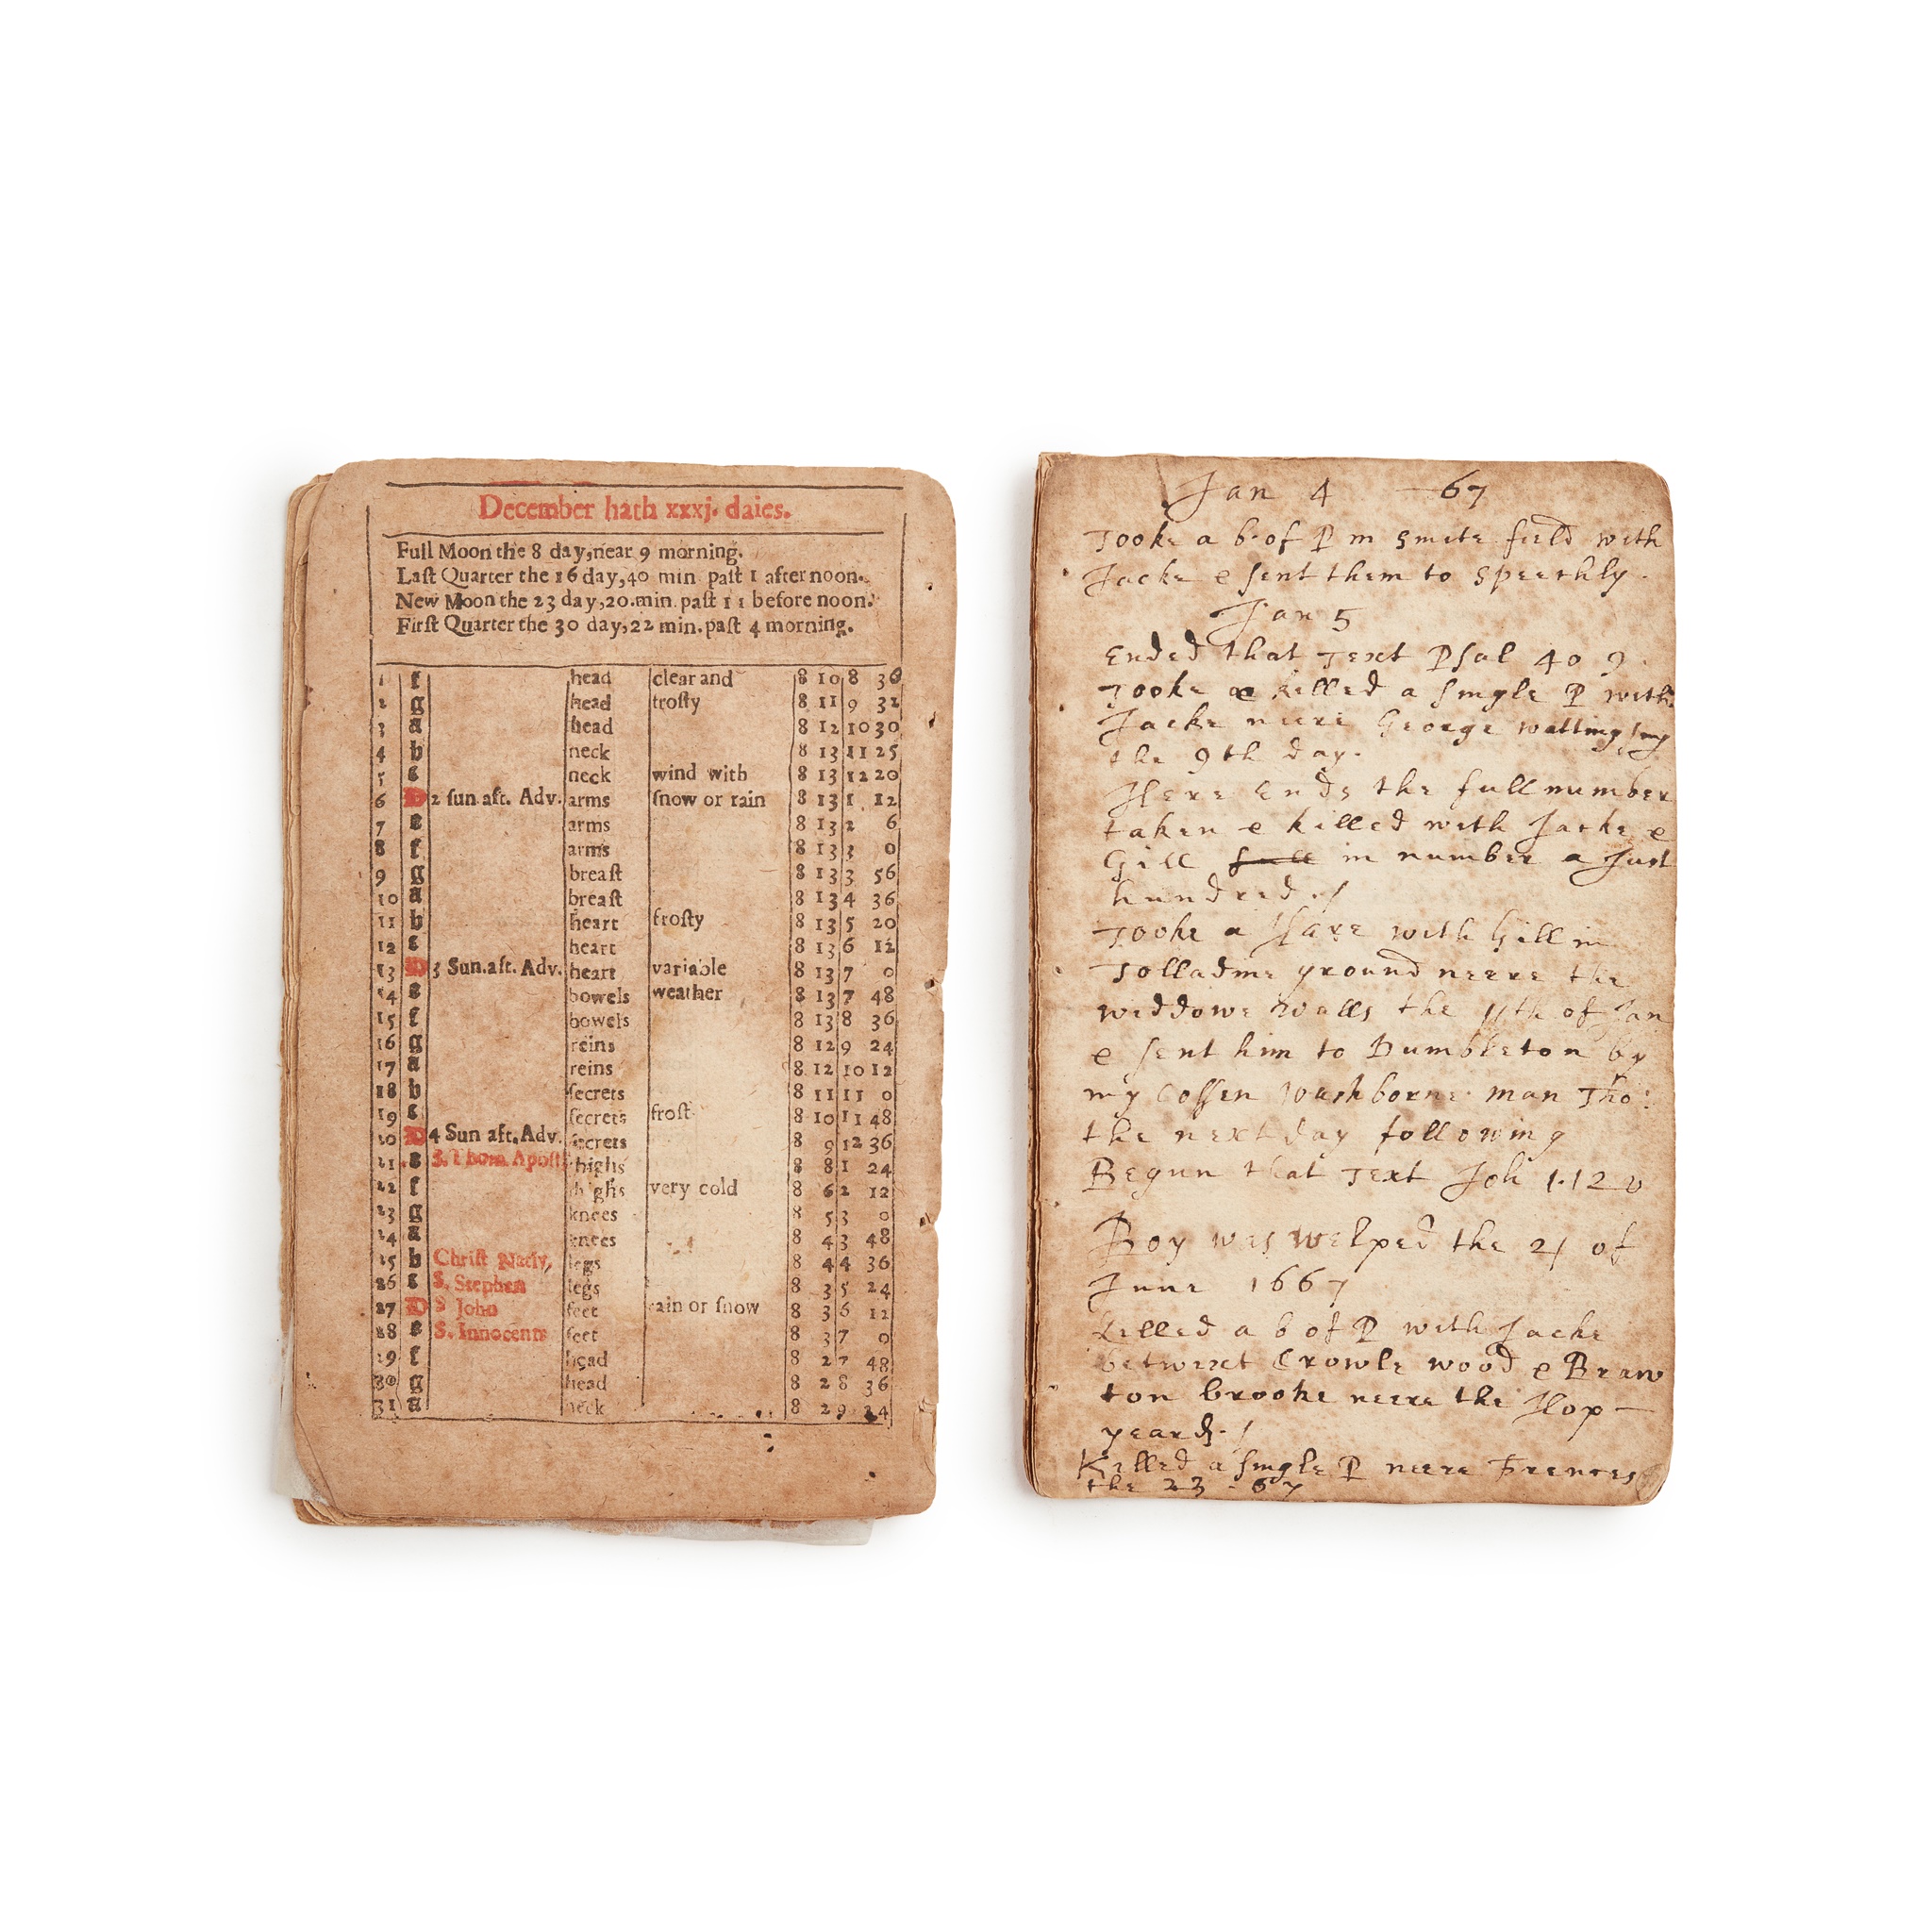 December hath xxxj. daies.
Full Moon the 8 day,near 9 morning.
Laſt Quarter the 16 day,40 min paſt 1 afternoon.
New Moon the 23 day,20.min paſt 11 before noon.
Firſt Quarter the 30 day,22 min.paſt 4 morning.
1 f head clear and 8 10 8 36
2 g head froſty 8 11 9 32
3 a head 8 12 10 30
4 b neck 8 13 11 25
5 c neck wind with 8 13 12 20
6 D 2 ſun aft. Adv. arms ſnow or rain 8 13 1 12
7 e arms 8 13 2 6
8 f arms 8 13 3 0
9 g breaſt 8 13 3 56
10 a breaſt 8 13 4 36
11 b heart froſty 8 13 5 20
12 c heart 8 13 6 12
13 D 3 Sun.aft. Adv. heart variable 8 13 7 0
14 e bowels weather 8 13 7 48
15 f bowels 8 13 8 36
16 g reins 8 12 9 24
17 a reins 8 12 10 12
18 b ſecrets 8 11 11 0
19 c ſecrets froſt 8 10 11 48
20 D 4 Sun aft. Adv. ſecrets 8 9 12 36
21 e S. Thom Apoſt thighs 8 8 1 24
22 f thighs very cold 8 6 2 12
23 g knees 8 5 3 0
24 a knees 8 4 3 48
25 b Chriſt Nativ. legs 8 4 4 36
26 c S. Stephen legs 8 3 5 24
27 D S John feet rain or ſnow 8 3 6 12
28 e S. Innocents feet 8 3 7 0
29 f head 8 2 7 48
30 g head 8 2 8 36
31 a neck 8 2 9 24
Jan 4 67
Tooke a b. of P in Smite feild with
Jacke e sent them to Speechly.
Jan 5
Ended that Text Psal 40 9.
Tooke e killed a single P with
Jacke neere George
the 9th day.
Here Ends the full number
taken e killed with Jacke e
Gill full in number a Just
hundred./
Tooke a Hare with Gill in
Tolladine ground neere the
widdowe Walls the 11th of Jan
e sent him to Dumbleton by
my Cossen Washborne man Tho:
the next day following
Begun that Text Joh 1.12 v
Boy was welped the 21 of
June 1667
Killed a b of P with Jacke
betwext Crowle wood e Braw
ton brooke neere the Hop-
yeard./
Killed a single P neere Frences
the 23 - 67